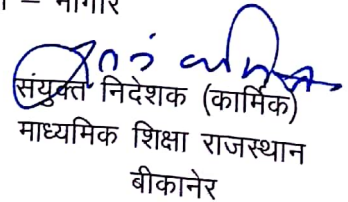 – नागौर
संयुक्त निदेशक (कार्मिक)
माध्यमिक शिक्षा राजस्थान
बीकानेर